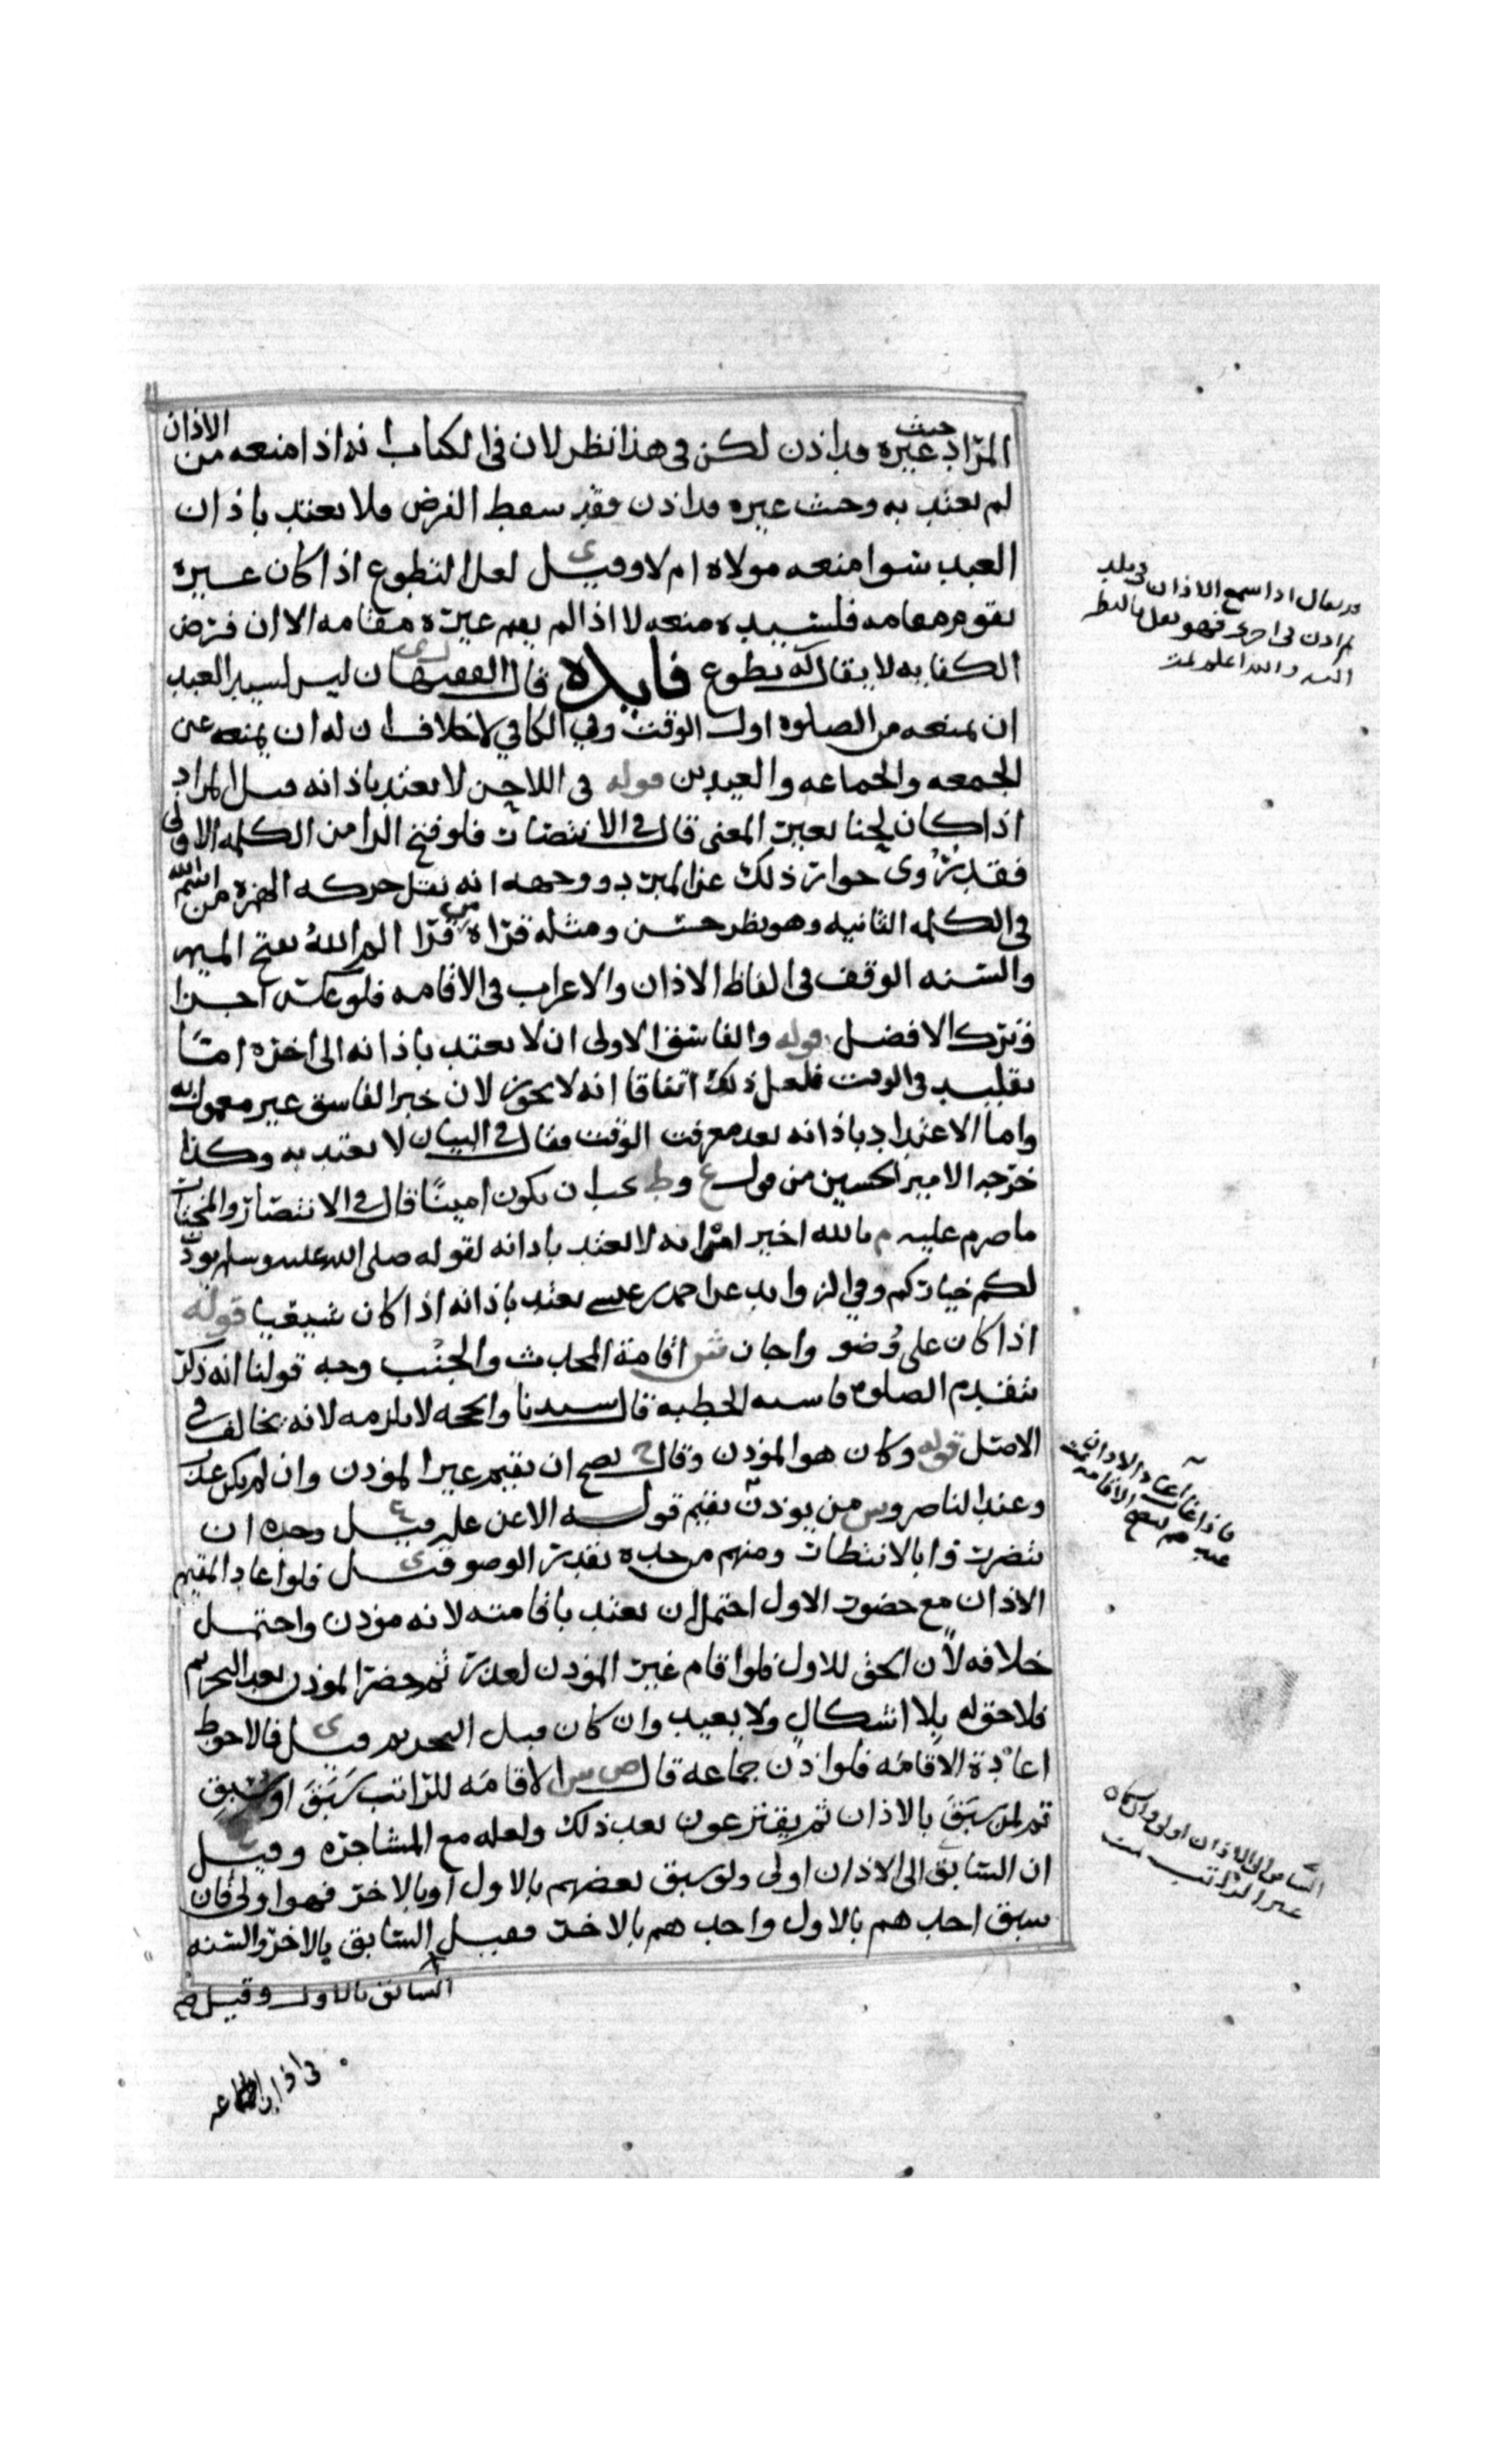 المراد حيث غيره قد اذن لكن في هذا نظر لان في الكتاب انه اذا منعه من الاذان
لم يعتد به وحيث غيره قد اذن فقد سقط الفرض فلا يعتد باذان
العبد سوا منعه مولاه ام لا وقيل ي لعل التطوع اذا كان غيره
يقوم مقامه فلسيده منعه لا اذا لم يقم غيره مقامه الا ان فرض
الكفايه لا يقال له تطوع فايده قال الفقيه ان ليس لسيد العبد
ان يمنعه من الصلوه اول الوقت وفي الكافي لا خلاف ان له ان يمنعه عن
الجمعه والجماعه والعيدين قوله في اللاحن لا يعتد باذانه قيل المراد
اذا كان لحنا يغير المعنى قال في الانتصار فلو فتح الرا من الكلمه الاولى
فقد روي جواز ذلك عن المبرد ووجهه انه نقل حركه الهمزه من اسم الله
في الكلمه الثانيه وهو نظر حسن ومثله قراة من قرا الم الله بفتح الميم
والسنه الوقف في الفاظ الاذان والاعراب في الاقامه فلو عكس اجزا
وترك الافضل قوله والفاسق الاولى ان لا يعتد باذانه الى اخره اما
تقليده في الوقت فلعل ذلك اتفاقا انه لا يجوز لان خبر الفاسق غير معمول به
واما الاعتداد باذانه بعد معرفت الوقت فقال في البيان لا يعتد به وكذا
خرجه الامير الحسين من قول ع وط يجب ان يكون امينا قال في الانتصار والمختار
ما صرح عليه م بالله اخير امرانه لا يعتد باذانه لقوله صلى الله عليه وسلم يوذن
لكم خياركم وفي الزوايد عن احمد بن عيسى يعتد باذانه اذا كان شيعيا قوله
اذا كان على وضو واجاز ش اقامة المحدث والجنب وجه قولنا انه ذكر
يتقدم الصلوه فاشبه الخطبه قال سيدنا والحجه لا تلزمه لانه يخالف في
الاصل قوله وكان هو الموذن وقال ح يصح ان يقيم غير الموذن وان لم يكن عذر
وعند الناصر وس من يوذن يقيم قوله الا عن عليه قيل ع وحده ان
يتضرروا بالانتظار ومنهم من حده بقدر الوضو قيل ي فلو اعاد المقيم
الاذان مع حضور الاول احتمل ان يعتد باقامته لانه موذن واحتمل
خلافه لان الحق للاول فلو اقام غير الموذن لعذر ثم حضر الموذن بعد التحريم
فلا حق له بلا اشكال ولا يعيد وان كان قبل التحريم قيل ي فالاحوط
اعادة الاقامه فلو اذن جماعه قال ص س الاقامه للراتب سبق او سبق
ثم لمن سبق بالاذان ثم يقترعون بعد ذلك ولعله مع المشاجره وقيل
ان السابق الى الاذان اولى ولو سبق بعضهم بالاول او بالاخر فهو اولى فان
سبق احدهم بالاول واحدهم بالاخر فقيل السابق بالاخر والسنه
السابق بالاول وقيل
في اذان الجماعه
قد يقال اذا سمع الاذان في بلد
ثم اذن في اخرى فهو
والله اعلم تمت
فاذا غاب اعاد الاذان
الاقامه تمت
السابق الى الاذان اولى وان كان
غير الراتب تمت